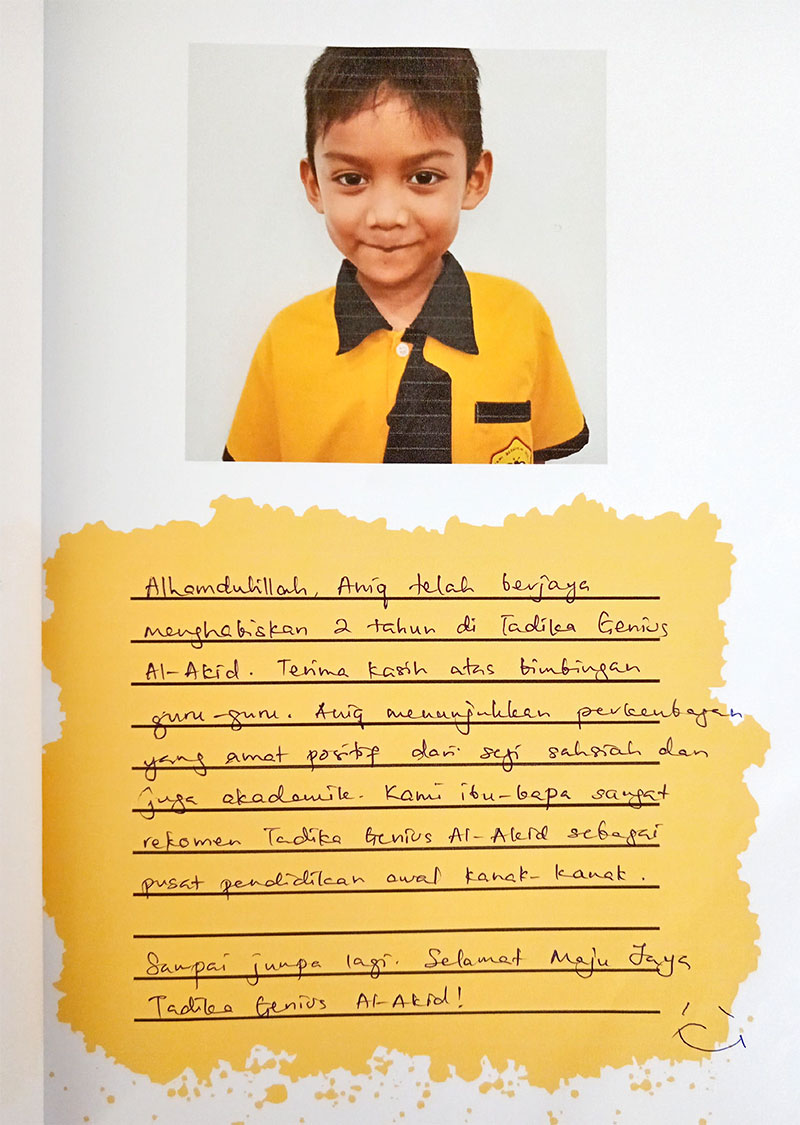 Alhamdulillah, Aniq telah berjaya
menghabiskan 2 tahun di Tadika Genius
Al-Akid. Terima kasih atas bimbingan
guru-guru. Aniq menunjukkan perkembagan
yang amat positif dari segi sahsiah dan
juga akademik. Kami ibu-bapa sangat
rekomen Tadika Genius Al-Akid sebagai
pusat pendidikan awal kanak-kanak.
Sampai jumpa lagi. Selamat Maju Jaya
Tadika Genius Al-Akid!